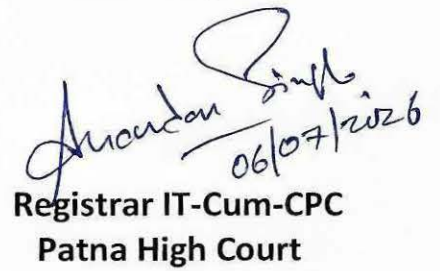 Singh
06/07/2026
Registrar IT-Cum-CPC
Patna High Court